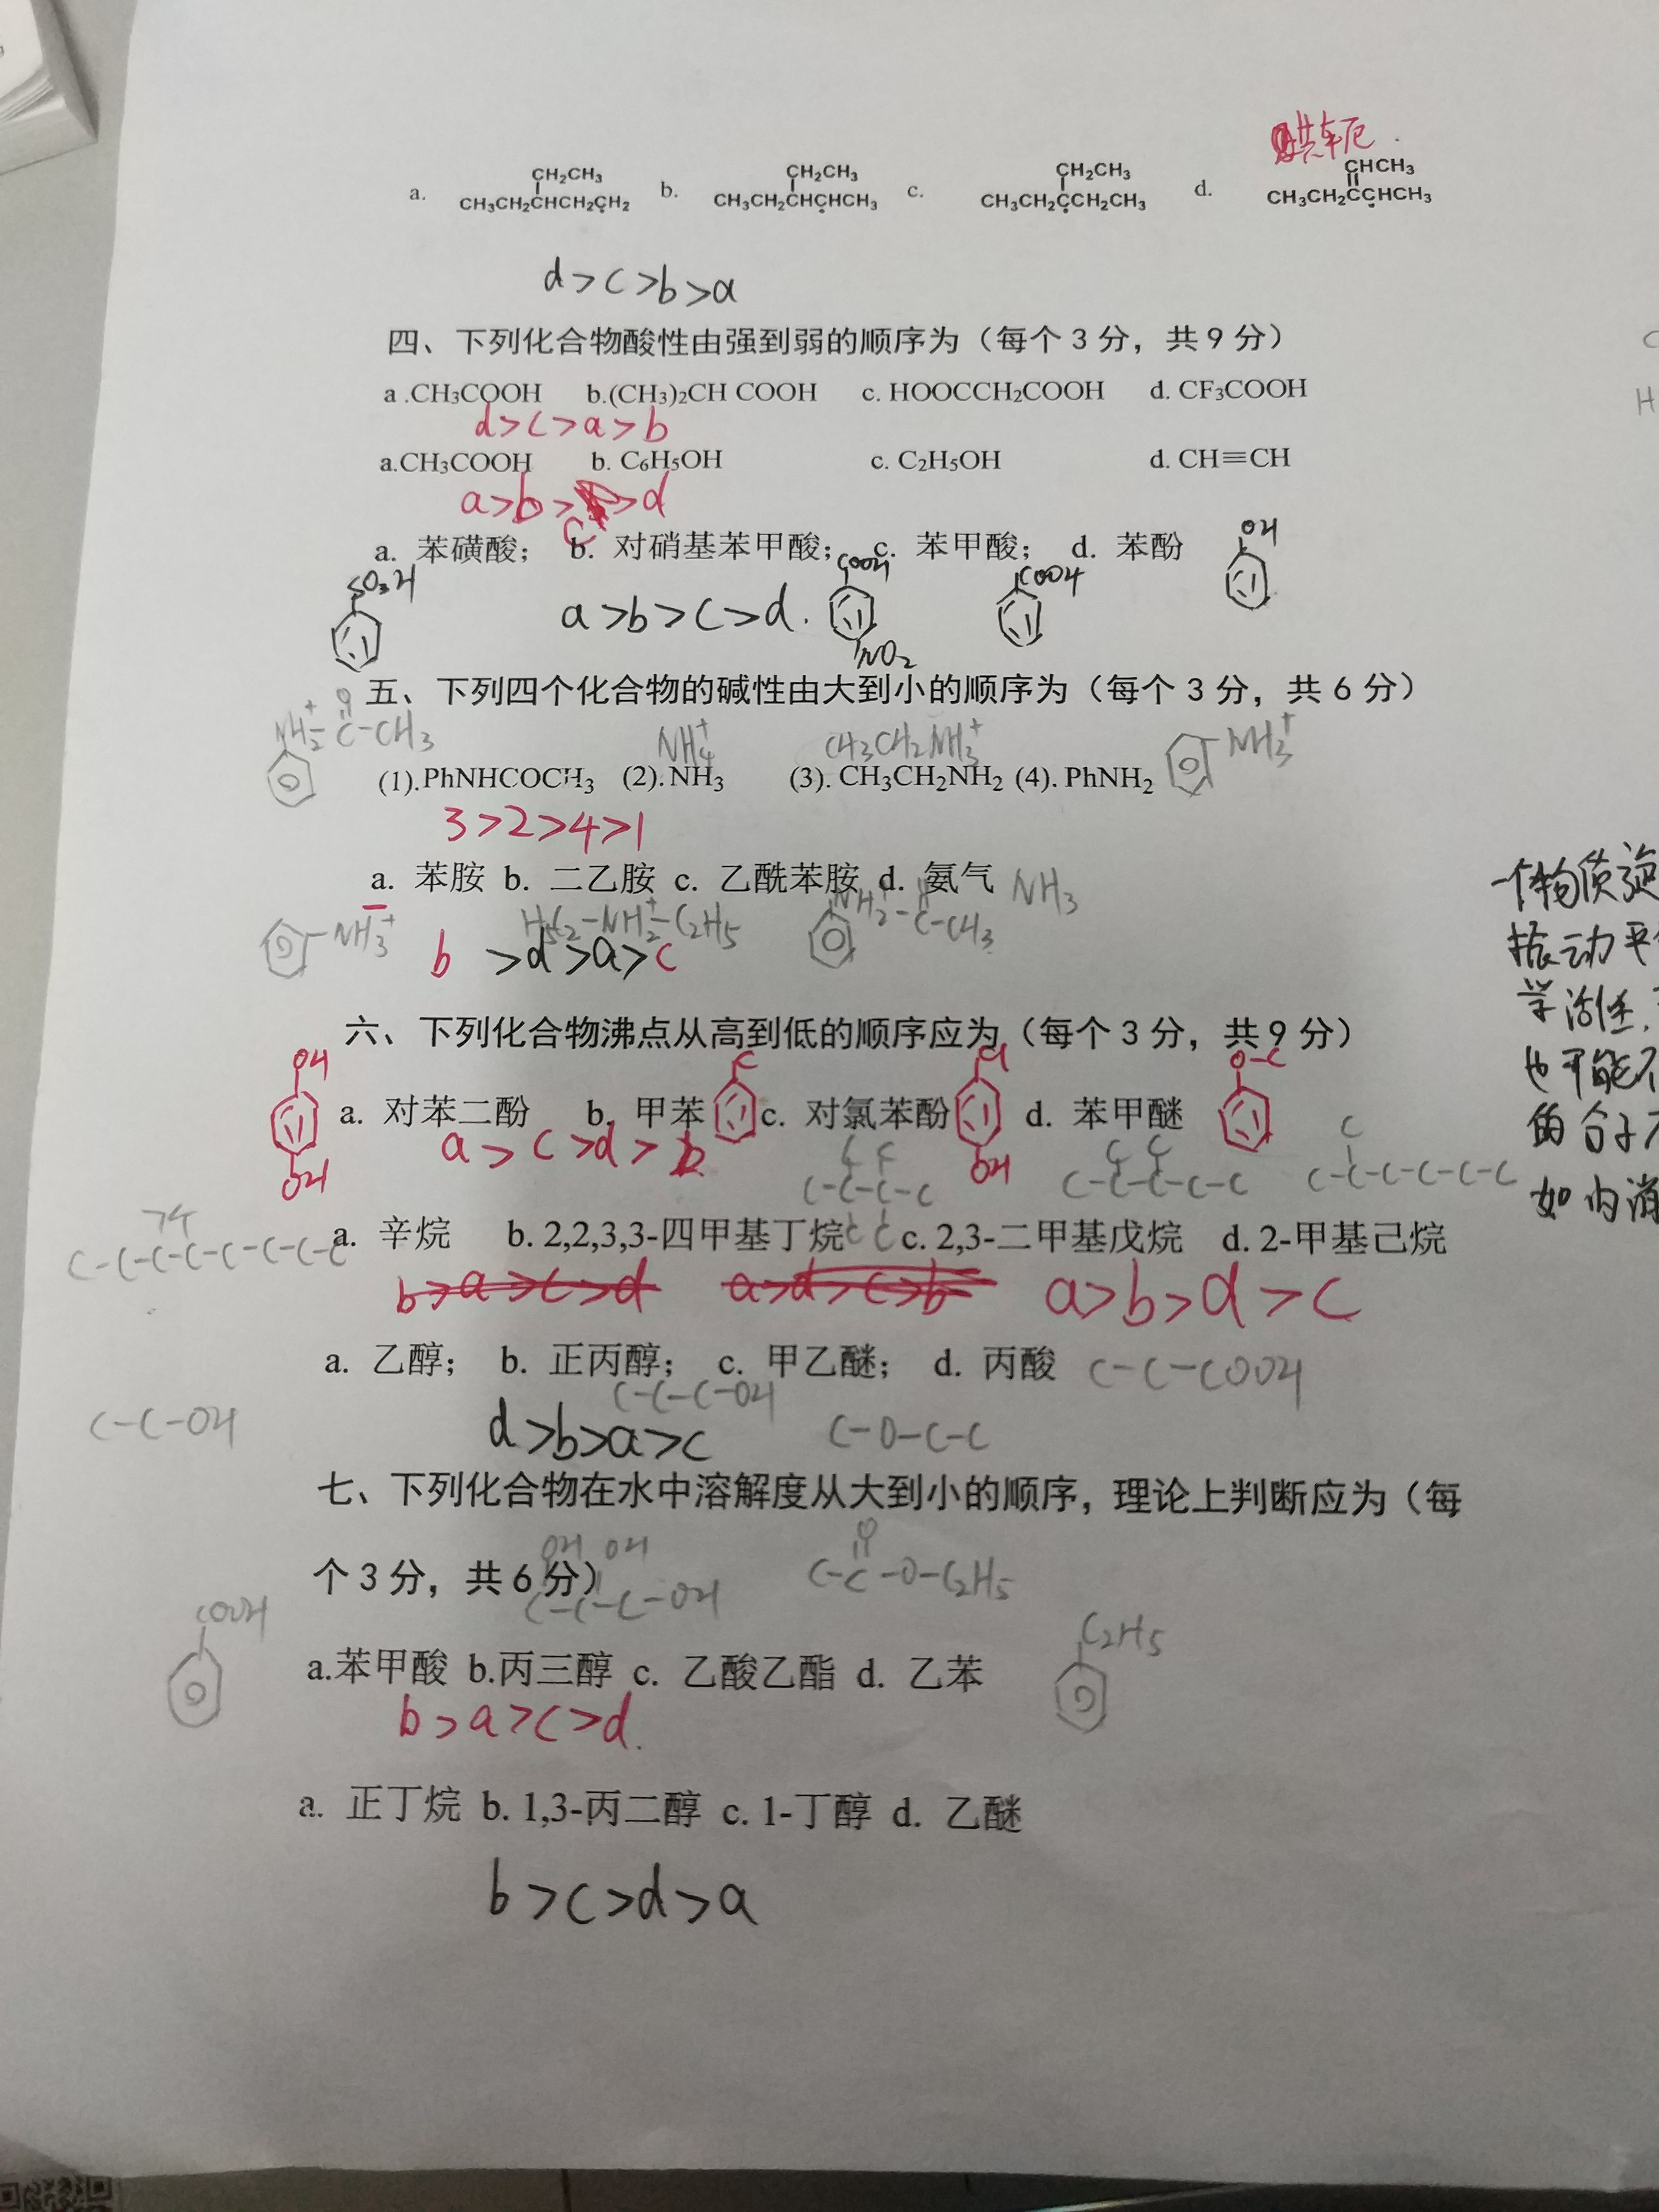 共轭
CH₂CH₃ CH₂CH₃ CH₂CH₃ CHCH₃
a. CH₃CH₂CHCH₂ĊH₂ b. CH₃CH₂CHĊHCH₃ c. CH₃CH₂ĊCH₂CH₃ d. CH₃CH₂CĊHCH₃
d>c>b>a
四、下列化合物酸性由强到弱的顺序为（每个3分，共9分）
a .CH₃COOH b.(CH₃)₂CH COOH c. HOOCCH₂COOH d. CF₃COOH
d>c>a>b
a.CH₃COOH b. C₆H₅OH c. C₂H₅OH d. CH≡CH
a>b>c>d
OH
a. 苯磺酸； b. 对硝基苯甲酸； c. 苯甲酸； d. 苯酚
SO₃H COOH COOH
a>b>c>d.
NO₂
五、下列四个化合物的碱性由大到小的顺序为（每个3分，共6分）
NH₂⁺-C-CH₃ O NH₄⁺ CH₃CH₂NH₃⁺ NH₃⁺
(1).PhNHCOCH₃ (2).NH₃ (3). CH₃CH₂NH₂ (4). PhNH₂
3>2>4>1
a. 苯胺 b. 二乙胺 c. 乙酰苯胺 d. 氨气 NH₃
NH₃⁺ H₅C₂-NH₂⁺-C₂H₅ NH₂⁺-C-CH₃
b >d>a>c
六、下列化合物沸点从高到低的顺序应为（每个3分，共9分）
OH C Cl O-C
a. 对苯二酚 b. 甲苯 c. 对氯苯酚 d. 苯甲醚
OH a>c>d>b OH
C C C C C
C-C-C-C C-C-C-C-C C-C-C-C-C-C
74
C-C-C-C-C-C-C-C a. 辛烷 b. 2,2,3,3-四甲基丁烷 c. 2,3-二甲基戊烷 d. 2-甲基己烷
C C
b>a>c>d a>d>c>b a>b>d>c
a. 乙醇； b. 正丙醇； c. 甲乙醚； d. 丙酸 C-C-COOH
C-C-OH C-C-C-OH C-O-C-C
d>b>a>c
七、下列化合物在水中溶解度从大到小的顺序，理论上判断应为（每
OH OH O
个3分，共6分）
C-C-C-OH C-C-O-C₂H₅
COOH C₂H₅
a.苯甲酸 b.丙三醇 c. 乙酸乙酯 d. 乙苯
b>a>c>d.
a. 正丁烷 b. 1,3-丙二醇 c. 1-丁醇 d. 乙醚
b>c>d>a
一个物质旋
振动平
学活性,
也可能不
的分子不
如内消